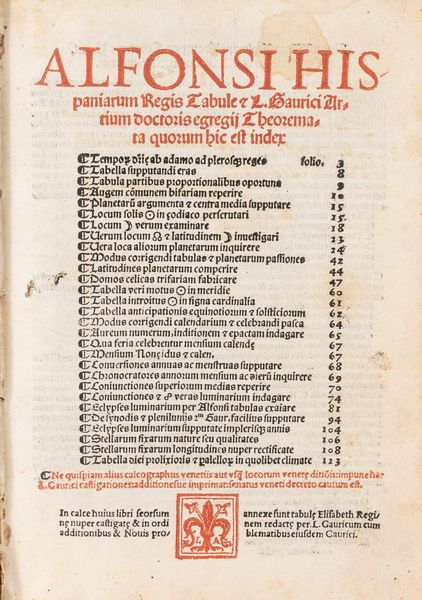 ALFONSI HIS
paniarum Regis Tabule & L. Gaurici Ar-
tium doctoris egregij Theorema-
ta quorum hic est index
¶ Tempoꝝ dr̄ie ab adamo ad plerosqꝫ reges folio. 3
¶ Tabella supputandi eras 8
¶ Tabula partibus proportionalibus oportuna 9
¶ Augem cōmunem bifariam reperire 10
¶ Planetarū argumenta & centra media supputare 15
¶ Locum solis ☉ in zodiaco perscrutari 15
¶ Locum ☽ verum examinare 18
¶ Uerum locum ☊ & latitudinem ☽ inuestigari 23
¶ Uera loca aliorum planetarum inquirere 24
¶ Modus corrigendi tabulas & planetarum passiones 42
¶ Latitudines planetarum comperire 44
¶ Domos celicas trifariam fabricare 47
¶ Tabella veri motus ☉ in meridie 60
¶ Tabella introitus ☉ in signa cardinalia 61
¶ Tabella anticipationis equinotiorum & solsticiorum 62
¶ Modus corrigendi calendarium & celebrandi pasca 64
¶ Aureum numerum, inditionem & epactam indagare 65
¶ Qua feria celebrentur mensium calende 67
¶ Mensium Nonę idus & calen. 67
¶ Conuersiones annuas ac menstruas supputare 68
¶ Chronocratores annorum mensium ac dierū inquirere 69
¶ Coniunctiones superiorum medias reperire 70
¶ Coniunctiones & ☍ veras luminarium indagare 74
¶ Eclypses luminarium per Alfonsi tabulas exaiare 81
¶ De synodis & plenilunijs ẜm Gaur. facilius supputare 94
¶ Eclypses luminarium supputate impleris annis 104
¶ Stellarum fixarum nature seu qualitates 106
¶ Stellarum fixarum longitudines nuper rectificate 108
¶ Tabella diei prolixioris & paralleloꝝ in quolibet climate 123
¶ Ne quispiam alius calcographus venetijs aut vsqꝫ locorum venete ditiōis: impune he
L. Gaurici castigationes: additionesue imprimat: senatus veneti decreto cautum est.
In calce huius libri seorsum annexe sunt tabulę Elisabeth Regi-
nę nuper castigatę & in ordi nem redactę per L. Gauricum cum
additionibus & Nouis pro blematibus eiusdem Gaurici.
L A